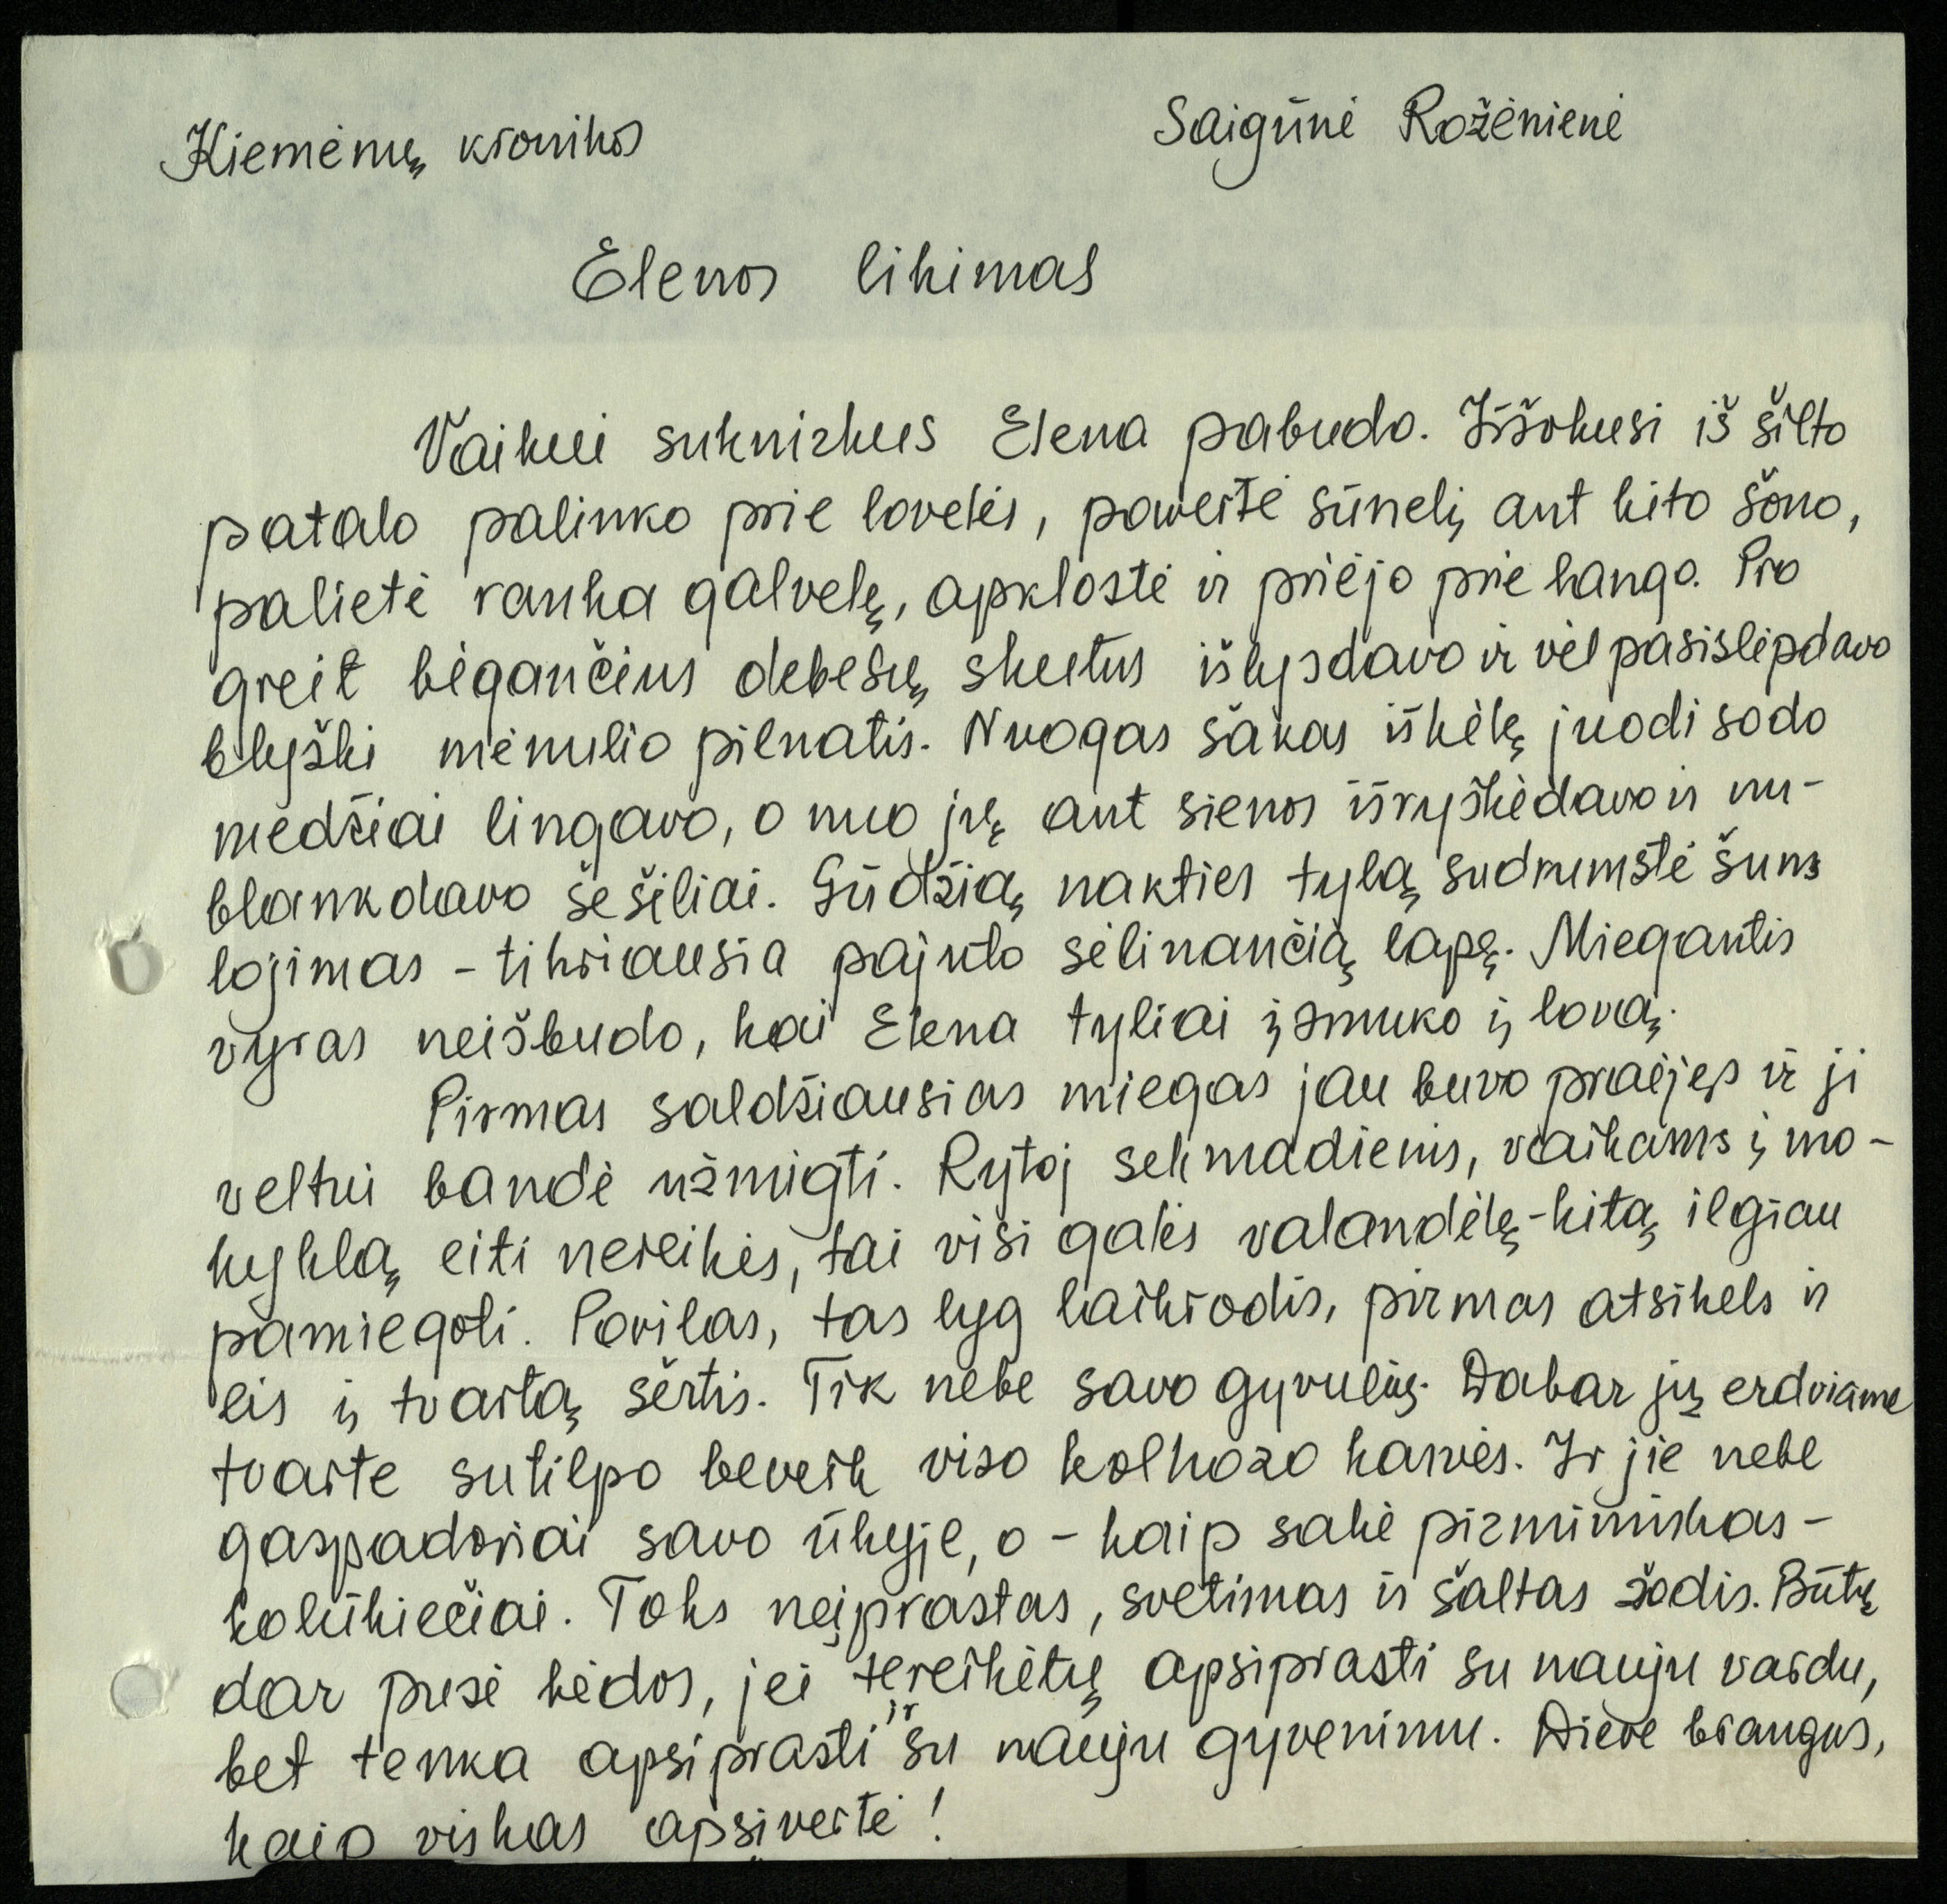 Kiemėnų kronikos
Saigūnė Roženienė
Elenos likimas
Vaikui suknirkus Elena pabudo. Iššokusi iš šilto
patalo palinko prie lovelės, pavertė sūnelį ant kito šono,
palietė ranka galvelę, apklostė ir priėjo prie lango. Pro
greit bėgančius debesų skutus išlysdavo ir vėl pasislėpdavo
blyški mėnulio pilnatis. Nuogas šakas iškėlę juodi sodo
medžiai lingavo, o nuo jų ant sienos išryškėdavo ir nu-
blankdavo šešėliai. Gūdžią nakties tylą sudrumstė šuns
lojimas - tikriausia pajuto sėlinančią lapę. Miegantis
vyras neišbudo, kai Elena tyliai įsmuko į lovą.
Pirmas saldžiausias miegas jau buvo praėjęs ir ji
veltui bandė užmigti. Rytoj sekmadienis, vaikams į mo-
kyklą eiti nereikės, tai visi galės valandėlę-kitą ilgiau
pamiegoti. Povilas, tas lyg laikrodis, pirmas atsikels ir
eis į tvartą šertis. Tik nebe savo gyvulių. Dabar jų erdviame
tvarte sutilpo beveik viso kolhozo karvės. Ir jie nebe
gaspadoriai savo ūkyje, o - kaip sakė pirmininkas -
kolūkiečiai. Toks neįprastas, svetimas ir šaltas žodis. Būtų
dar pusė bėdos, jei tereikėtų apsiprasti su nauju vardu,
bet tenka apsiprasti ir su nauju gyvenimu. Dieve brangus,
kaip viskas apsivertė!